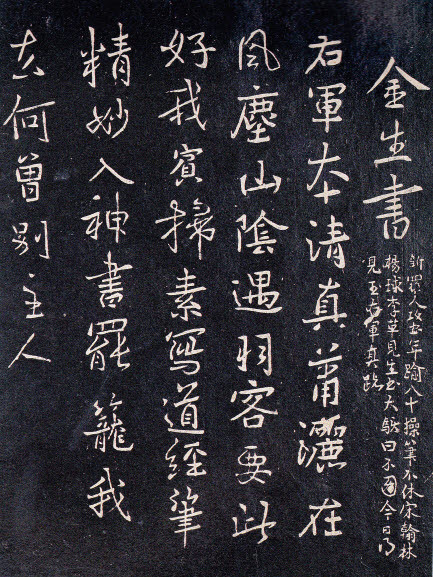 金生書
新羅人攻書年踰八十操筆不休宋翰林
楊球李革見生書大駭曰不圖今日得
見王右軍真跡
右軍本清真蕭灑在
風塵山陰遇羽客要此
好我賓掃素寫道經筆
精妙入神書罷籠我
去何曾別主人